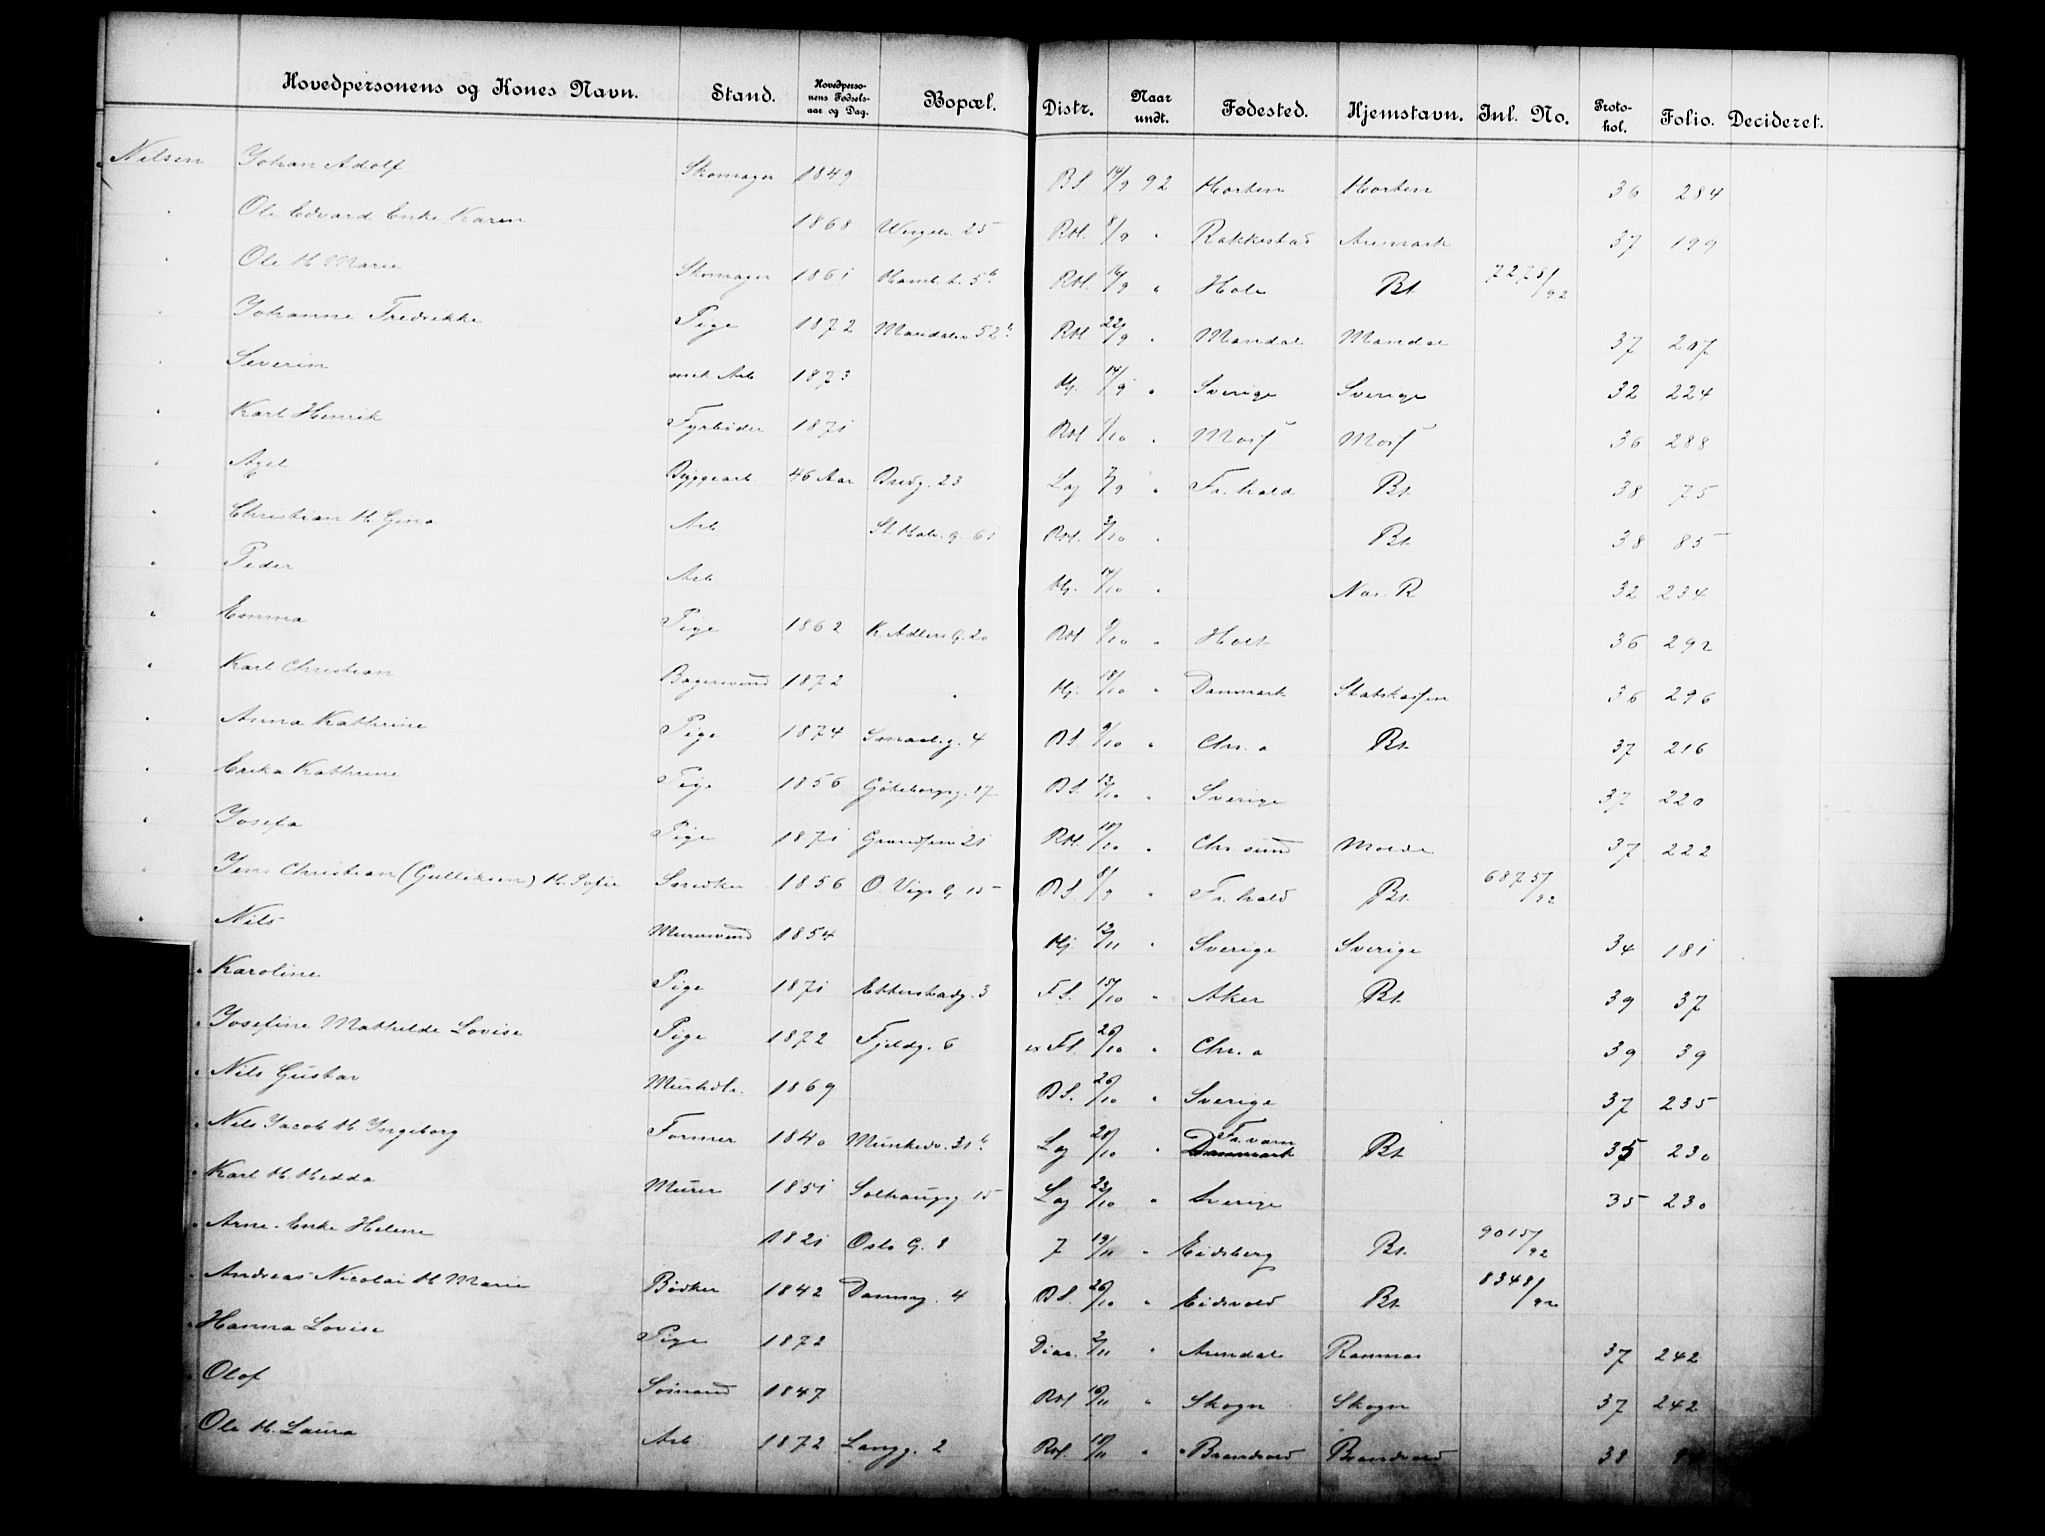 Hovedpersonens og Kones Navn. Stand. Hovedpersonens Fødselsaar og Dag. Bopæl. Distr. Naar undt. Fødested. Hjemstavn. Inl. No. Protokol. Folio. Decideret.
Nilsen Johan Adolf Skomager 1849 BS 14/9 92 Horten Horten 36 284
" Ole Edvard Enke Karen 1868 25 RH. 8/9 " Rakkestad Aremark 37 199
" Ole H Marie Skomager 1861 5b RH. 14/9 " Hole Bt 7278/92
" Johanne Fredrikke Pige 1872 Maridalsv 52b RH 22/9 " Mandal Mandal 37 207
" Severin 1873 Hj. 14/9 " Sverige Sverige 32 224
" Karl Henrik Fyrbøder 1871 RH 1/10 " Moss Moss 36 288
" Axel Byggearb. 46 Aar Bredg. 23 Log 7/9 " Fr.hald Bt. 38 75
" Christian H Gina Arb St. Halv. g. 61 RH. 3/10 " Bt. 38 85
" Peder Arb Hj. 14/10 " Nor. R 32 234
" Emma Pige 1862 K. Adlers g. 20 RH 9/10 " Holt 36 292
" Karl Christian Bagersvend 1872 " Hj. 18/10 " Danmark Statskassen 36 296
" Anna Kathrine Pige 1874 Smaalg. 4 BS. 9/10 " Chr.a Bt. 37 216
" Erika Kathrine Pige 1856 Göteborgg. 17 BS. 13/10 " Sverige 37 220
" Josefa Pige 1871 Grændsen 21 RH. 18/10 " Chr.sund Molde 37 222
" Jens Christian (Gulliksen) H. Sofie Snedker 1856 O. Vigs G. 15 BS 8/9 " Fr.hald Bt. 6875/92
" Nils Murersvend 1854 Hj 12/11 " Sverige Sverige 34 181
" Karoline Pige 1871 Etterstadg. 3 FS. 15/10 " Aker Bt. 39 37
" Josefine Mathilde Lovise Pige 1872 Fjeldg. 6 FS. 26/10 " Chr.a 39 39
" Nils Gustav Murhdl. 1869 BS. 26/10 " Sverige 37 235
" Nils Jacob H Ingeborg Former 1840 Munkedv. 31b Log 28/10 " Danmark Fr.værn Bt. 35 230
" Karl H. Hedda Murer 1851 Solhaugg. 15 Log 23/10 " Sverige 35 230
" Arne. Enke Helene 1821 Oslo G. 8 7 19/11 " Eidsberg Bt. 9015/92
" Andreas Nicolai H Marie Bødker 1842 Dammg. 4 BS. 26/10 " Eidsvold Bt 8348/92
" Hanna Lovise Pige 1872 Diac. 2/11 " Arendal Ramnæs 37 242
" Olof Sömand 1847 RH 10/11 " Skogn Skogn 37 242
Ole H. Laura Arb 1872 Langg. 2 RH. 18/11 " Brandvold Brandvold 38